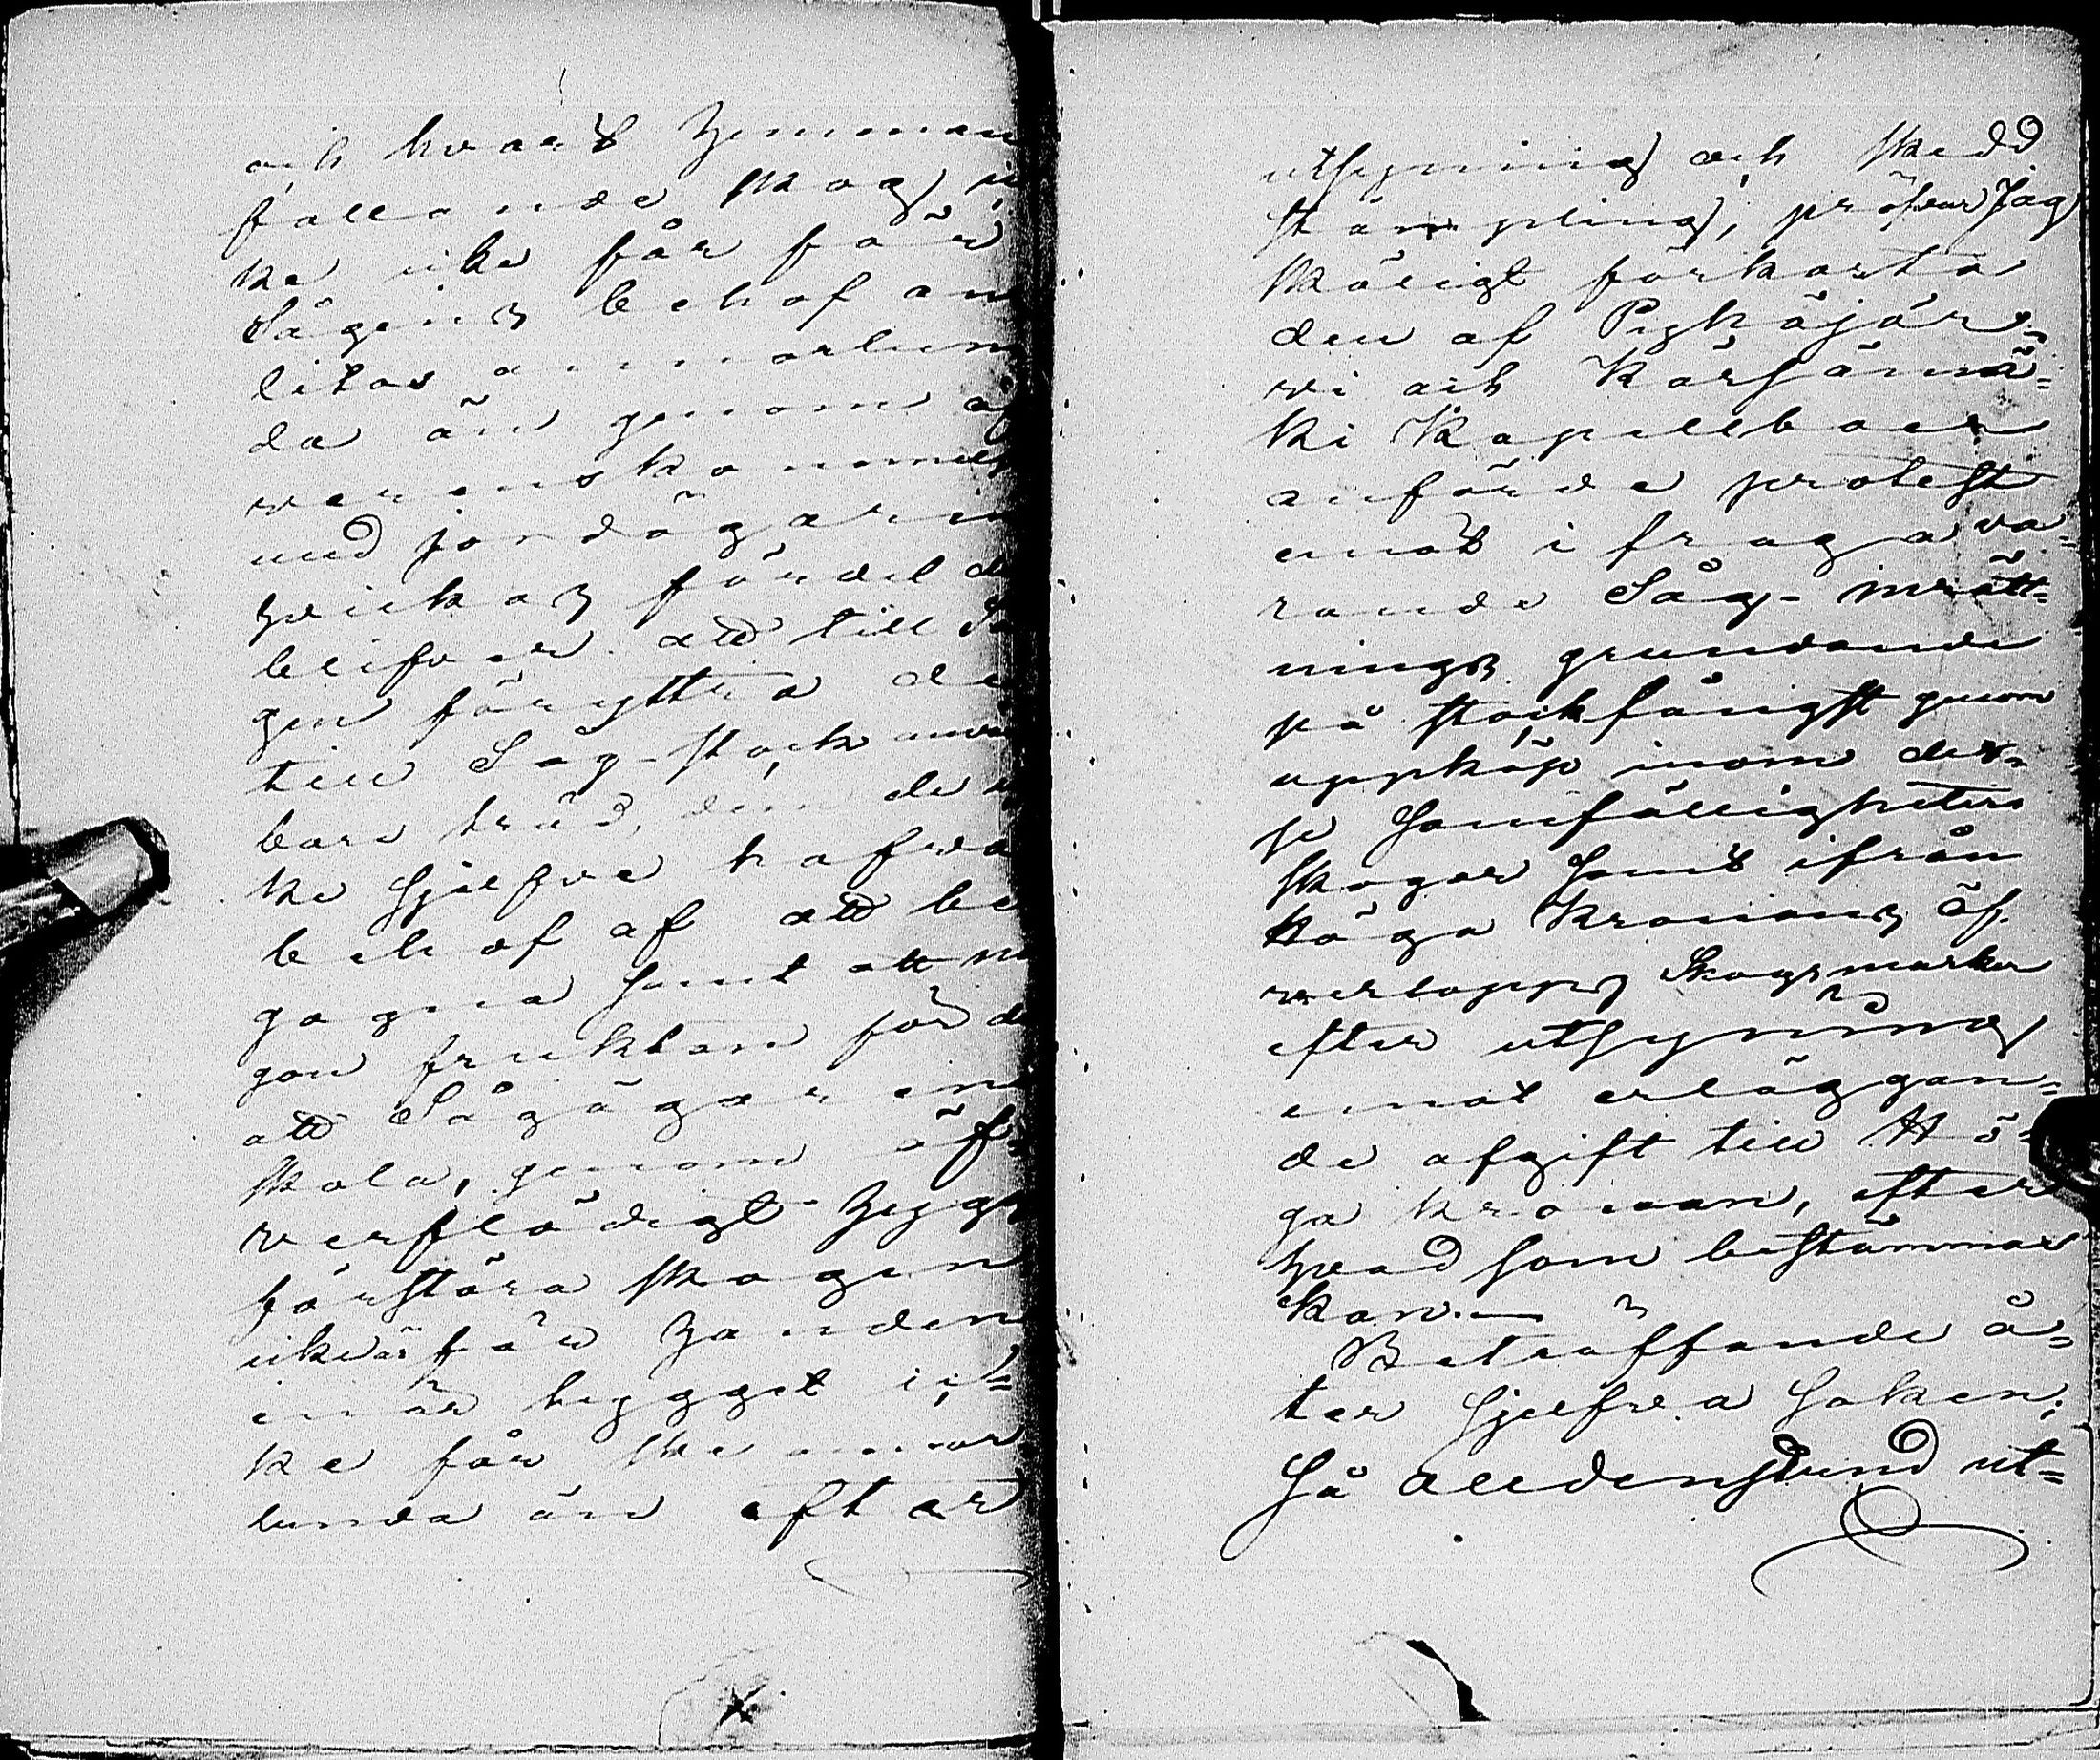 och hvars hemman
fallande skog ic
ke eller får för
Sågens behof an
litas annorlun
da än genom öf
verenskommelse
med jordägaren
hvilkas fördel de
blifver att till Så
gen föryttra de
till Såg-stock använd
bare träd, dem de ic
ke sjelfve hafva
behof af att be
gagna samt att nå
gon fruktan för de
att Sågägaren
skola, genom öf
verflödigt hygge
förstöra skogen
icke är för handen
enär hygget ic=
ke får ske annor
lunda än efter
utsyning och skedd
stämpling, pröfvar Jag
skäligt förkasta
den af Pyhäjär=
vi och Kärsämä=
ki Kapellboer
anförde protest
emot i fråga va=
rande Såg-inrätt=
nings grundande
på stockfångst genom
uppköp inom des=
se Samfälligheters
skogar samt ifrån
höga Kronans öf
verlopps Skogsmarker
efter utsyning
emot erläggan=
de afgift till Hö=
ga kronan, efter
hvad som bestämmas
kan.—
Beträffande å=
ter sjelfva saken;
Så alldenstund ut=